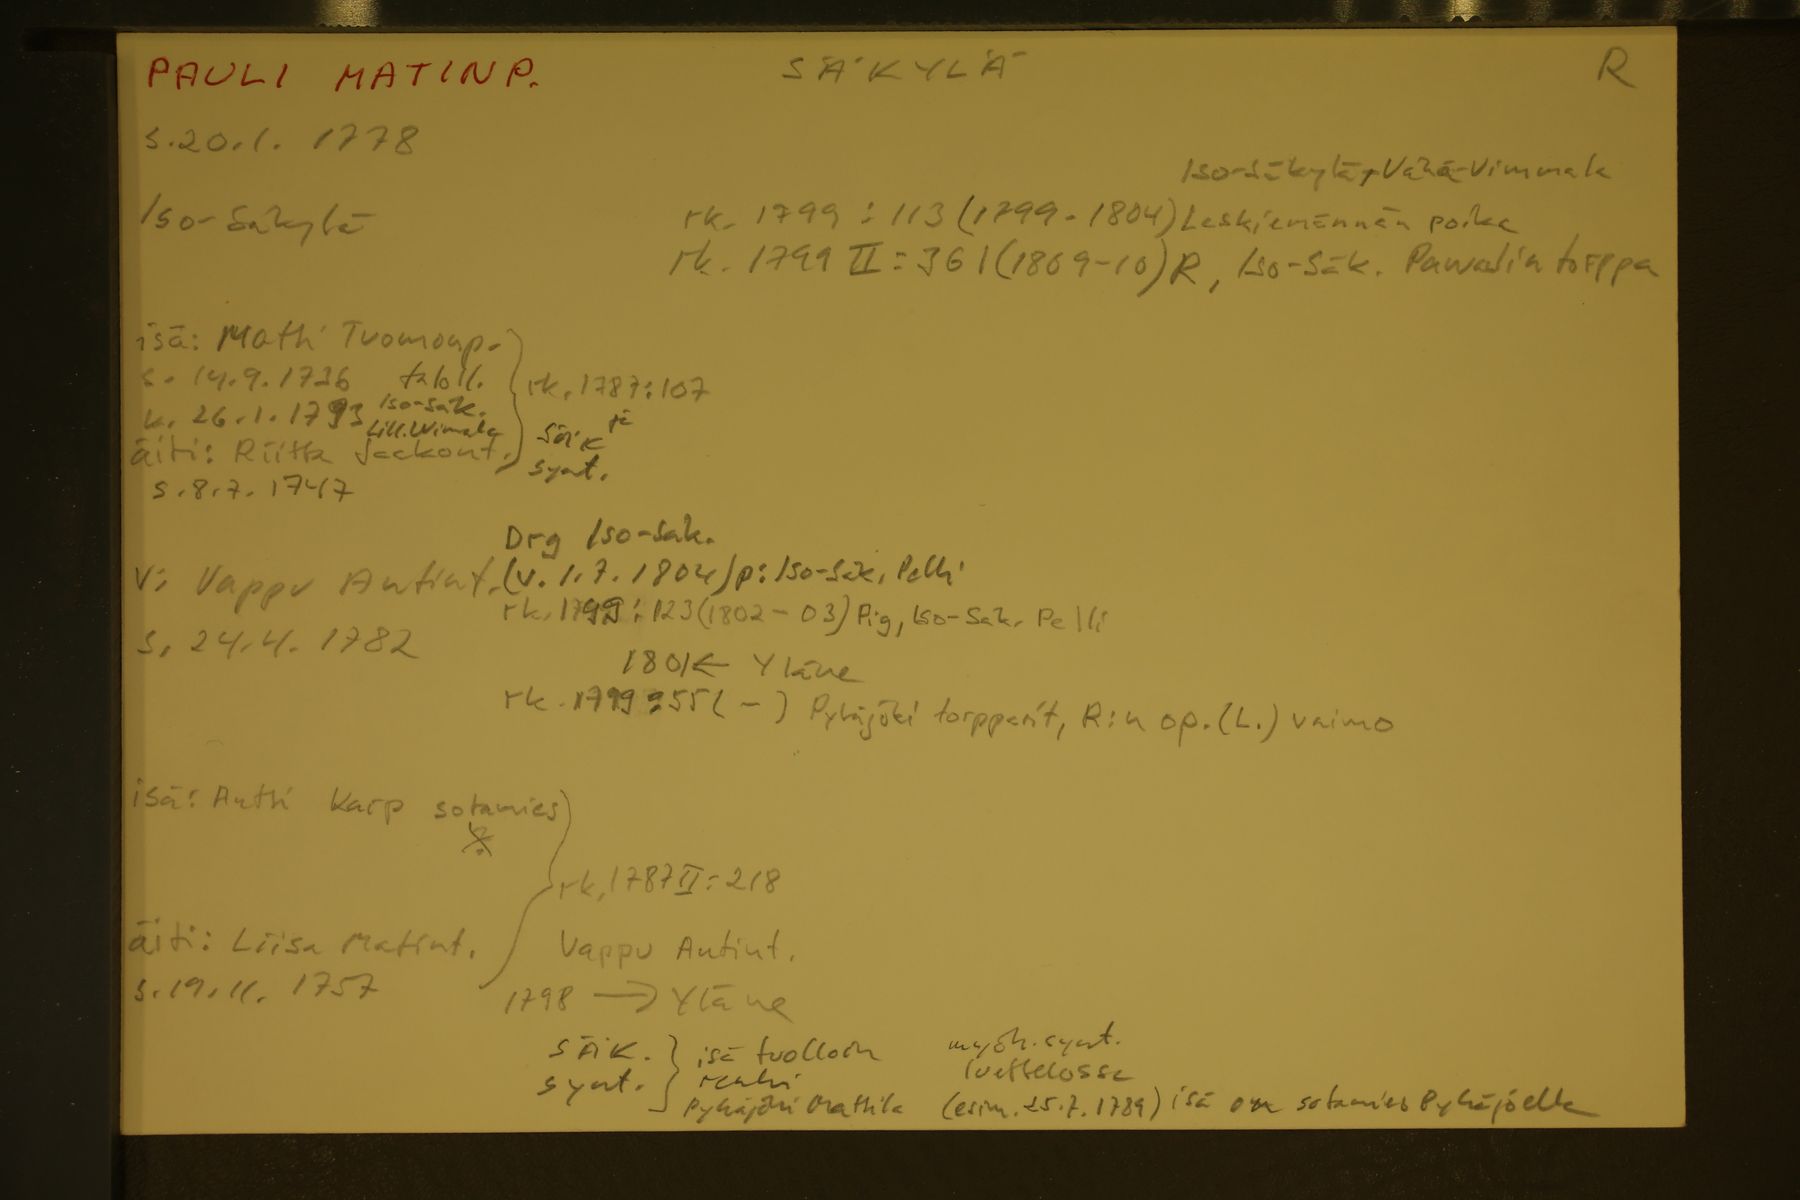 PAULI MATINP. SÄKYLÄ R
s. 20.1. 1778
Iso-Säkylä, Vähä-Vimmala
Iso-Säkylä rk. 1799 : 113 (1799-1804) Leskiemännän poika
rk. 1799 II : 361 (1809-10) R, Iso-Säk. torppa
isä: Matti Tuomonp.
s. 14.9. 1736 taloll. rk. 1787:107
k. 26.1. 1793 Iso-Säk. Lill. Wimala
äiti: Riitta Jaakont. SÄIK
synt.
s. 8.7. 1747
Drg Iso-Säk.
v: Vappu Antint. (v. 1.7. 1804) p: Iso-Säk. Pelli
rk. 1799: 123 (1802-03) Pig, Iso-Säk. Pelli
s. 24.4. 1782
1801 ← Yläne
rk. 1799:55 ( - ) Pyhäjoki torpparit, R:n op. (L.) vaimo
isä: Antti Karp sotamies
rk. 1787 II: 218
äiti: Liisa Matint. Vappu Antint.
s. 19.11. 1757 1798 → Yläne
SÄIK. isä tuolloin myöh. synt.
synt. renki luettelossa
Pyhäjoki Mattila (esim. 25.7. 1789) isä on sotamies Pyhäjoella